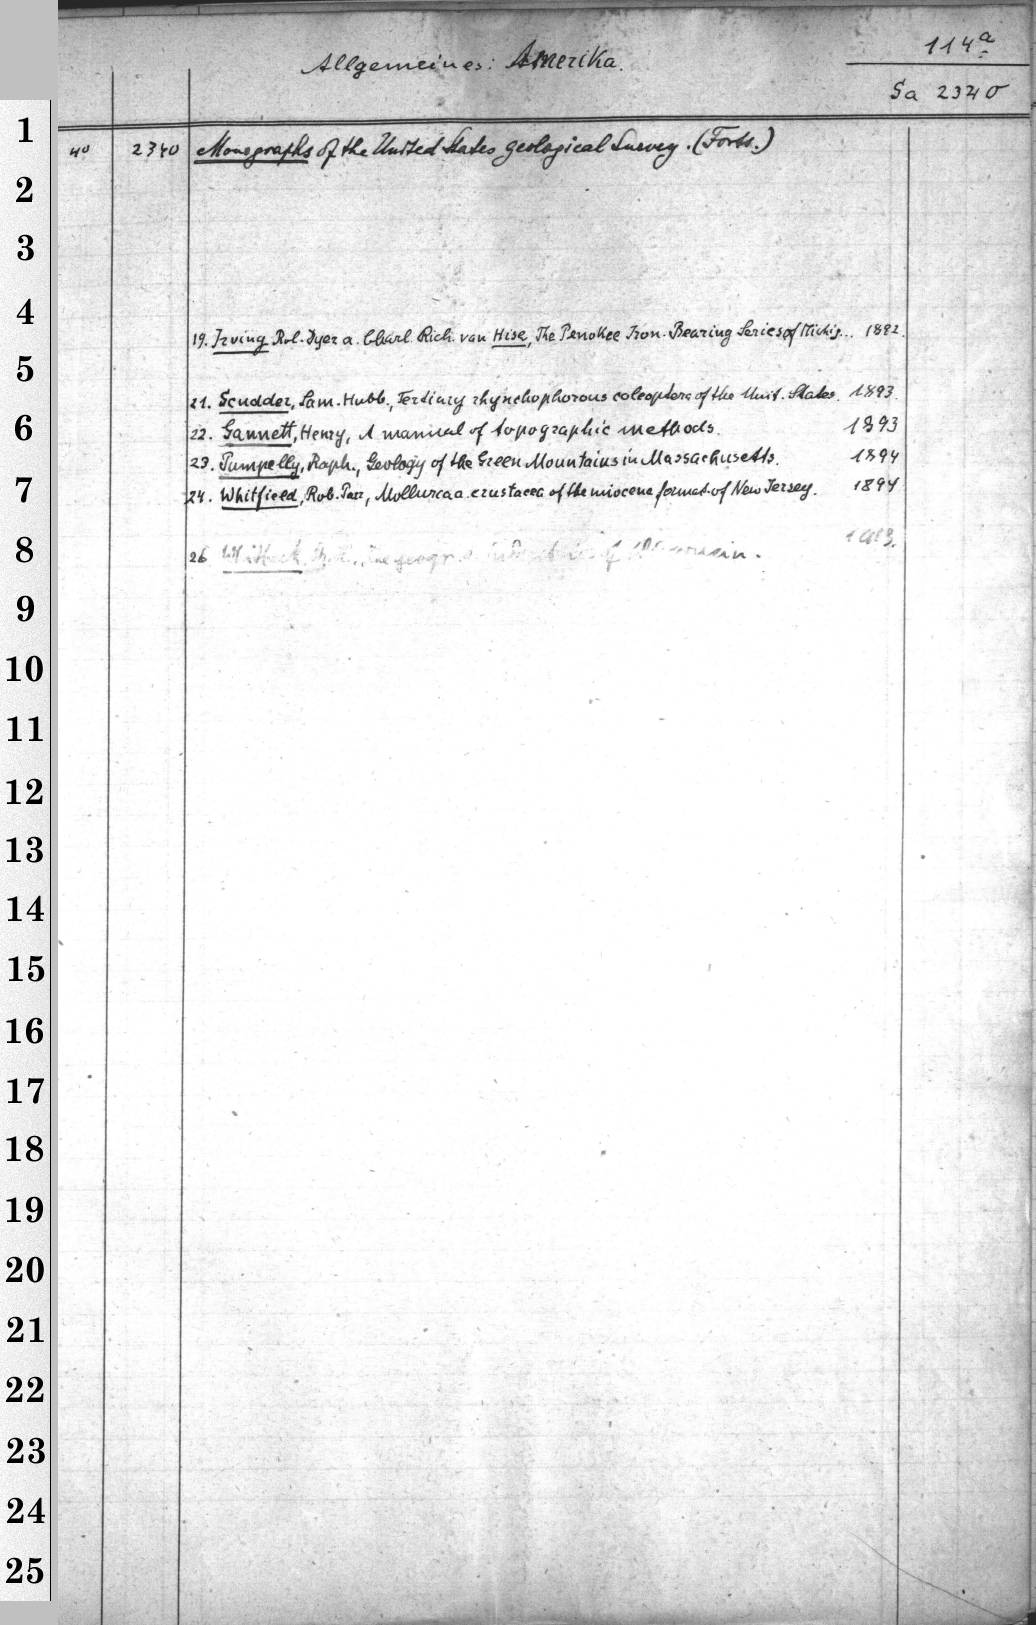 114a
Allgemeines: Amerika.
Sa 2340
1
4o 2340 Monographs of the United States geological Survey. (Forts.)
2
3
4
19. Irving Rol. Dyer a. Charl. Rich. van Hise, The Penokee Iron-Bearing Series of Michig... 1892.
5
21. Scudder, Sam. Hubb., Tertiary rhynchophorous coleoptera of the Unit. States. 1893.
6
22. Gannett, Henry, A manual of topographic methods. 1893
23. Pumpelly, Raph., Geology of the Green Mountains in Massachusetts. 1894
7
24. Whitfield, Rob. Parr, Mollusca a. crustacea of the miocene format. of New Jersey. 1894
8
26 the geogr. of
9
10
11
12
13
14
15
16
17
18
19
20
21
22
23
24
25